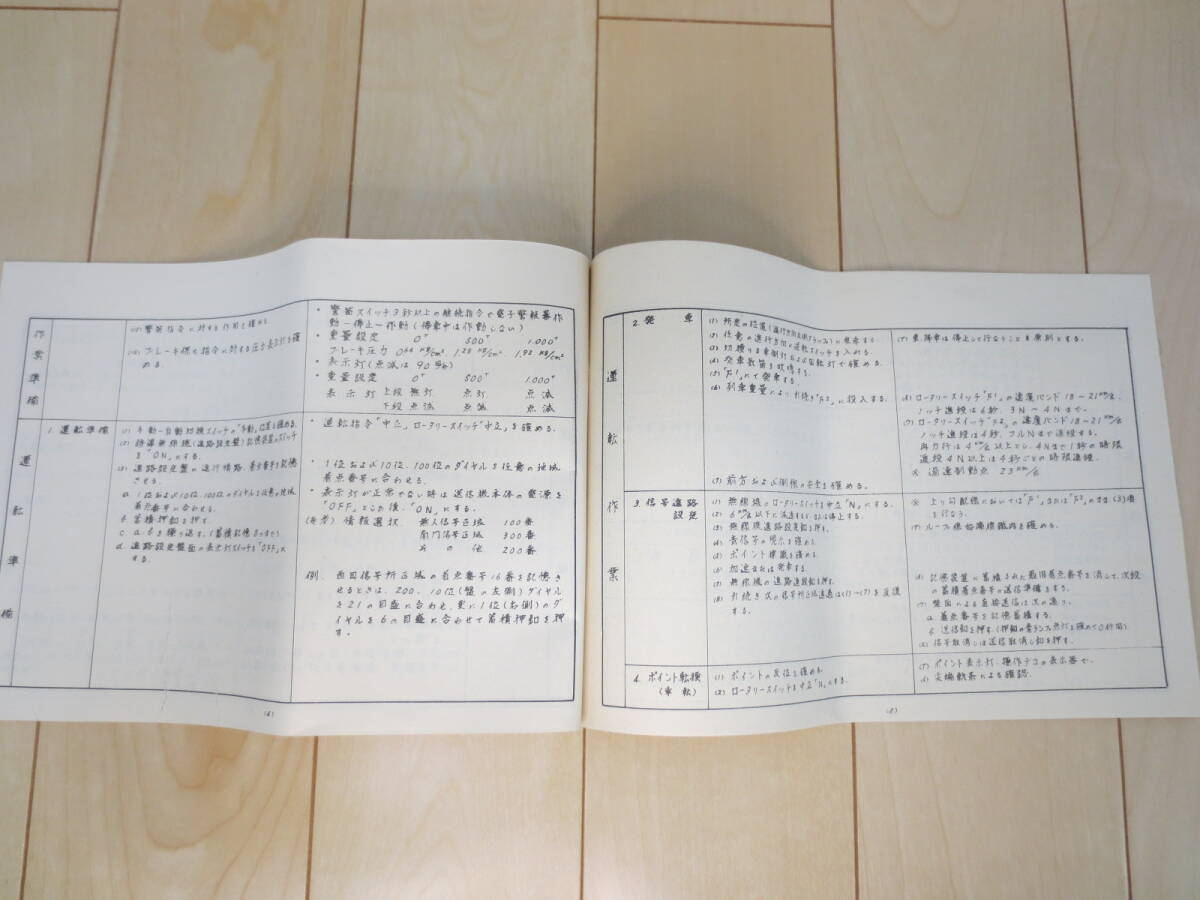 作業準備
警笛指令に対する作用を確める。
ブレーキ指令に対する圧力表示灯を確
める。
• 警笛スイッチ3秒以上の継続指令で電子警報器作
動−停止−作動(停車中は作動しない)
• 重量設定 0ᵗ 500ᵗ 1.000ᵗ
ブレーキ圧力
• 表示灯(点滅は90
• 重量設定 0ᵗ 500ᵗ 1.000ᵗ
表示灯 上段 無灯 点灯 点滅
下段 点滅 点滅 点滅
運転準備
1. 運転準備
(1) 手動−自動切換スイッチの「手動」位置を確める。
(2) 誘導無線機(進路設定盤)記憶装置のスイッチ
を「ON」にする。
(3) 進路設定盤に進行順路、着点番号を記憶
させる。
a 1位および10位、100位のダイヤルを任意の地域、
着点番号に合わせる。
b 蓄積押釦を押す。
c a.bを繰り返す。
d 進路設定盤面の表示灯スイッチを「OFF」に
する。
• 運転指令「中立」ロータリースイッチ「中立」を確める。
• 1位および10位、100位のダイヤルを任意の地域、
着点番号に合わせる。
• 表示灯が正常でない時は送信機本体の電源を
「OFF」とした後、「ON」にする。
(参考) 情報選択 無人信号区域 100番
南門信号区域 300番
其の他 200番
例. 西回信号所区域の着点番号16番を記憶さ
せるときは、200、10位(盤の左側)ダイヤル
を21の目盛に合わせ、更に1位(右側)のダ
イヤルを6の目盛に合わせて蓄積押釦を押
す。
運転作業
2. 発車
(1) 所定の位置
(2) 任意の進行方向に運転スイッチを入れる。
(3) 切換弁
(4) 発車数笛を吹鳴する。
(5) 「F1」にて発車する。
(6) 列車重量により引続き「F2」に投入する。
(7) 前方および側面の安全を確める。
(ア) 乗降車は停止して行なうことを原則とする。
(イ) ロータリースイッチ「F1」の速度バンド 18−21㎞/h
ノッチ進段は6秒、3N〜4Nまで。
(ウ) ロータリースイッチ「F2」の速度バンド 18−21㎞/h
ノッチ進段は4秒、フルNまで進段する。
再力行は4㎞/h以上とし、4Nまで1秒の時限
進段4N以上は4秒ごとの時限進段。
※ 過速制動点 23㎞/h
3. 信号進路設定
(1) 無線機のロータリースイッチを中立「N」にする。
(2) 6㎞/h以下に減速するか又は停止する。
(3) 無線機進路設定釦を押す。
(4) 表信号の現示を確める。
(5) ポイント標識を確める。
(6) 加速または発車する。
(7) 無線機の進路進段釦を押す。
(8) 引続き次の信号所区域進路は(1)〜(7)を反復
する。
※ 上り勾配線においては「F1」または「F2」のまま(3)項
を行なう。
(ア) ループ線始端標識内を確める。
(イ) 記憶装置に蓄積された最旧着点番号を消して、次段
の蓄積着点番号の送信準備をする。
(ウ) 盤面による直接送信は次の通り。
a. 着点番号を記憶蓄積する。
b. 送信釦を押す。
(エ) 信号取消しは送信取消し釦を押す。
4. ポイント転換
(1) ポイントの定位を確める。
(2) ロータリースイッチを中立「N」にする。
(ア) ポイント表示灯、操作テコの表示器で。
(イ) 尖端軌条による確認。